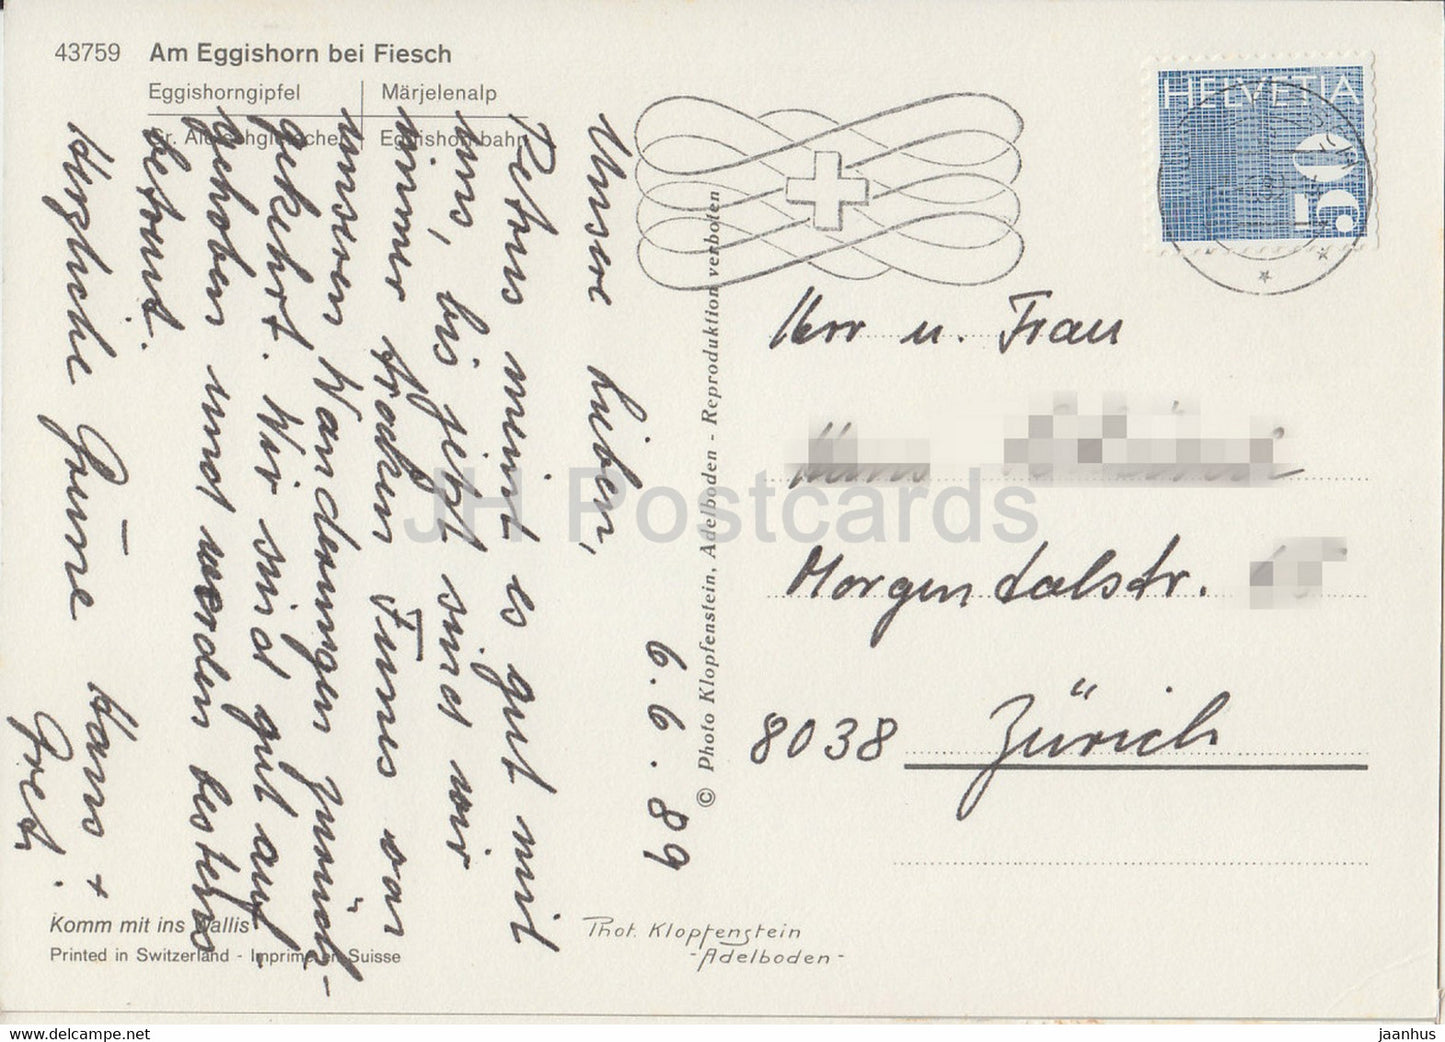 43759 Am Eggishorn bei Fiesch
Eggishorngipfel
Märjelenalp
Gr. Aletschgletscher
Eggishornbahn
6. 6. 89
Unsere Lieben,
Petrus meint es gut mit
uns, bis jetzt sind wir
immer trocken Fusses von
unseren Wanderungen zurück-
gekehrt. Wir sind gut auf-
gehoben und werden bestens
betreut.
Herzliche Grüsse Hans +
Gret.
Komm mit ins Wallis
Printed in Switzerland - Imprimé en Suisse
© Photo Klopfenstein, Adelboden - Reproduktion verboten
Phot. Klopfenstein
-Adelboden-
HELVETIA
50
Herr u. Frau
Morgentalstr.
8038 Zürich
JH Postcards
www.delcampe.net
jaanhus